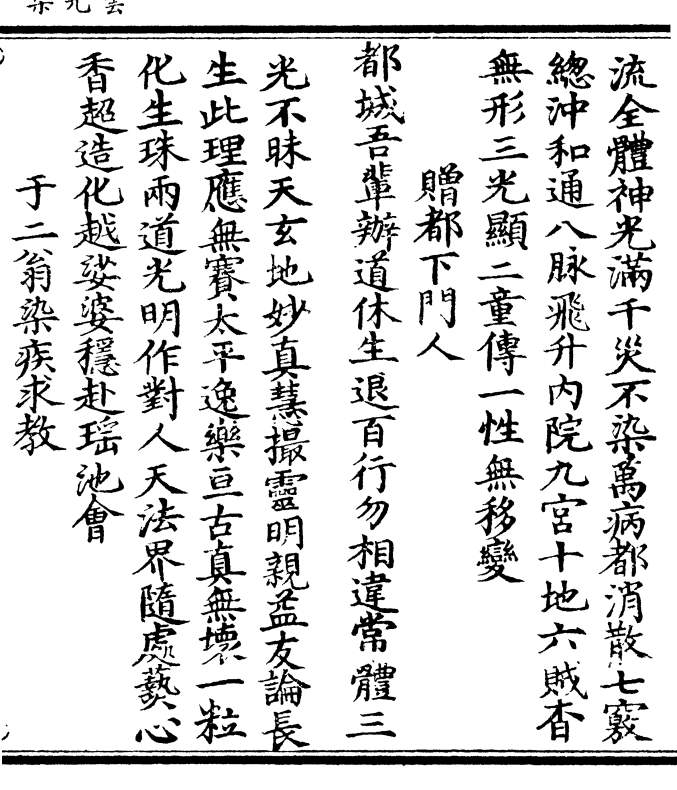 流全體神光滿千災不染萬病都消散七竅
總沖和通八脉飛升内院九宮十地六賊杳
無形三光顯二童傳一性無移變
贈都下門人
都城吾輩辦道休生退百行勿相違常體三
光不昧天玄地妙真慧撮靈明親益友論長
生此理應無賽太平逸樂亘古真無壞一粒
化生珠兩道光明作對人天法界隨處爇心
香超造化越娑婆穩赴瑶池會
于二翁染疾求教